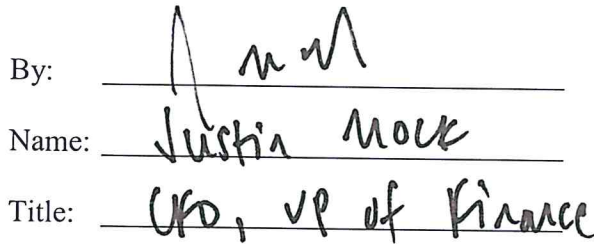 By:
Name: Justin Mock
Title: CFO, VP of Finance